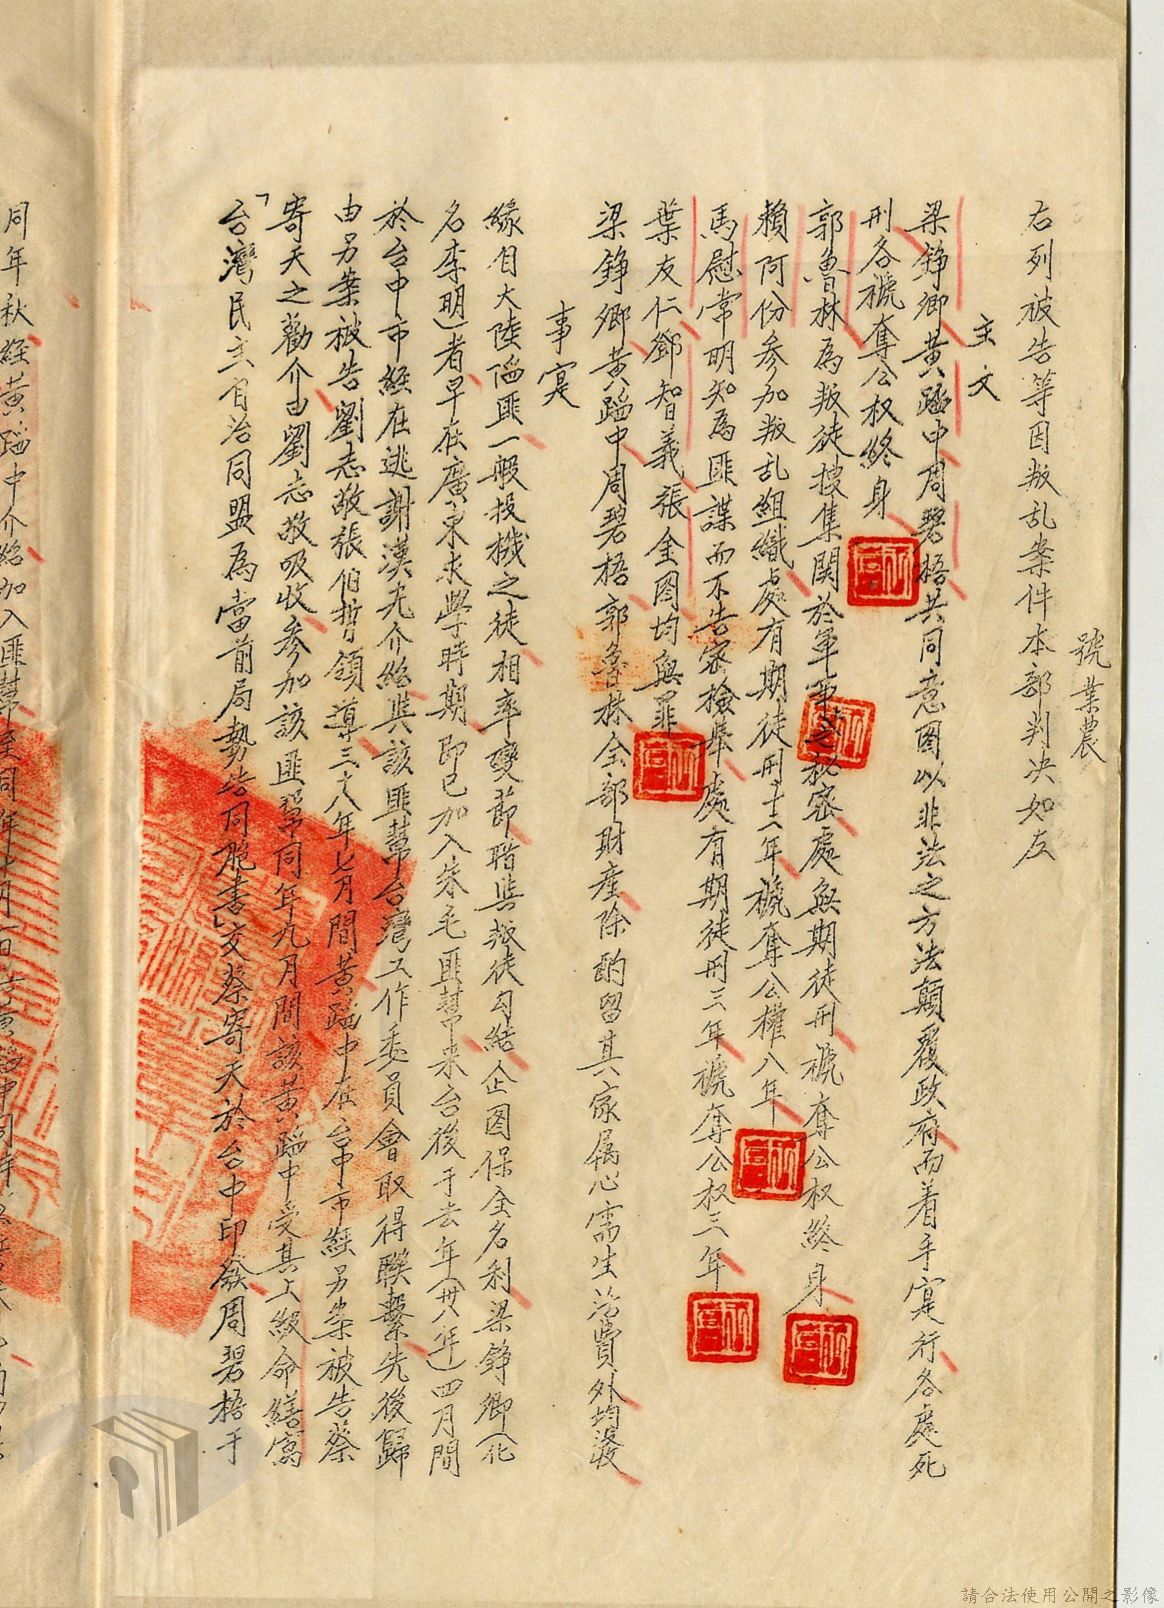 號業農
右列被告等因叛乱案件本部判决如左
主文
梁錚卿黃蹈中周碧梧共同意图以非法之方法顛覆政府而着手寔行各處死
刑各褫奪公权終身
郭魯林為叛徒搜集関於軍事之秘密處無期徒刑褫奪公权終身
賴阿份參加叛乱組織處有期徒刑十二年褫奪公權八年
馬慰常明知為匪諜而不告密檢舉處有期徒刑三年褫奪公权三年
葉友仁鄧智義張金图均無罪
梁錚卿黃蹈中周碧梧郭魯林全部財產除酌留其家属必需生活費外均沒
事寔
緣自大陸陷匪一般投機之徒相率變節暗與叛徒勾結企图保全名利梁錚卿(化
名李明)者早在廣東求學時期即已加入朱毛匪幫来台後于去年(卅八年)四月間
於台中市經在逃謝漢光介紹與該匪幫台灣工作委員會取得聯繫先後歸
由另案被告劉志敬張伯哲領導三十八年七月間黃蹈中在台中市經另案被告蔡
寄天之勸介由劉志敬吸收参加該匪幫同年九月間該黃蹈中受其上級命繕寫
「台灣民主自治同盟為當前局勢告同胞書」交蔡寄天於台中印發周碧梧于
同年秋經黃蹈中介紹加入匪幫至同年十月
請合法使用公開之影像